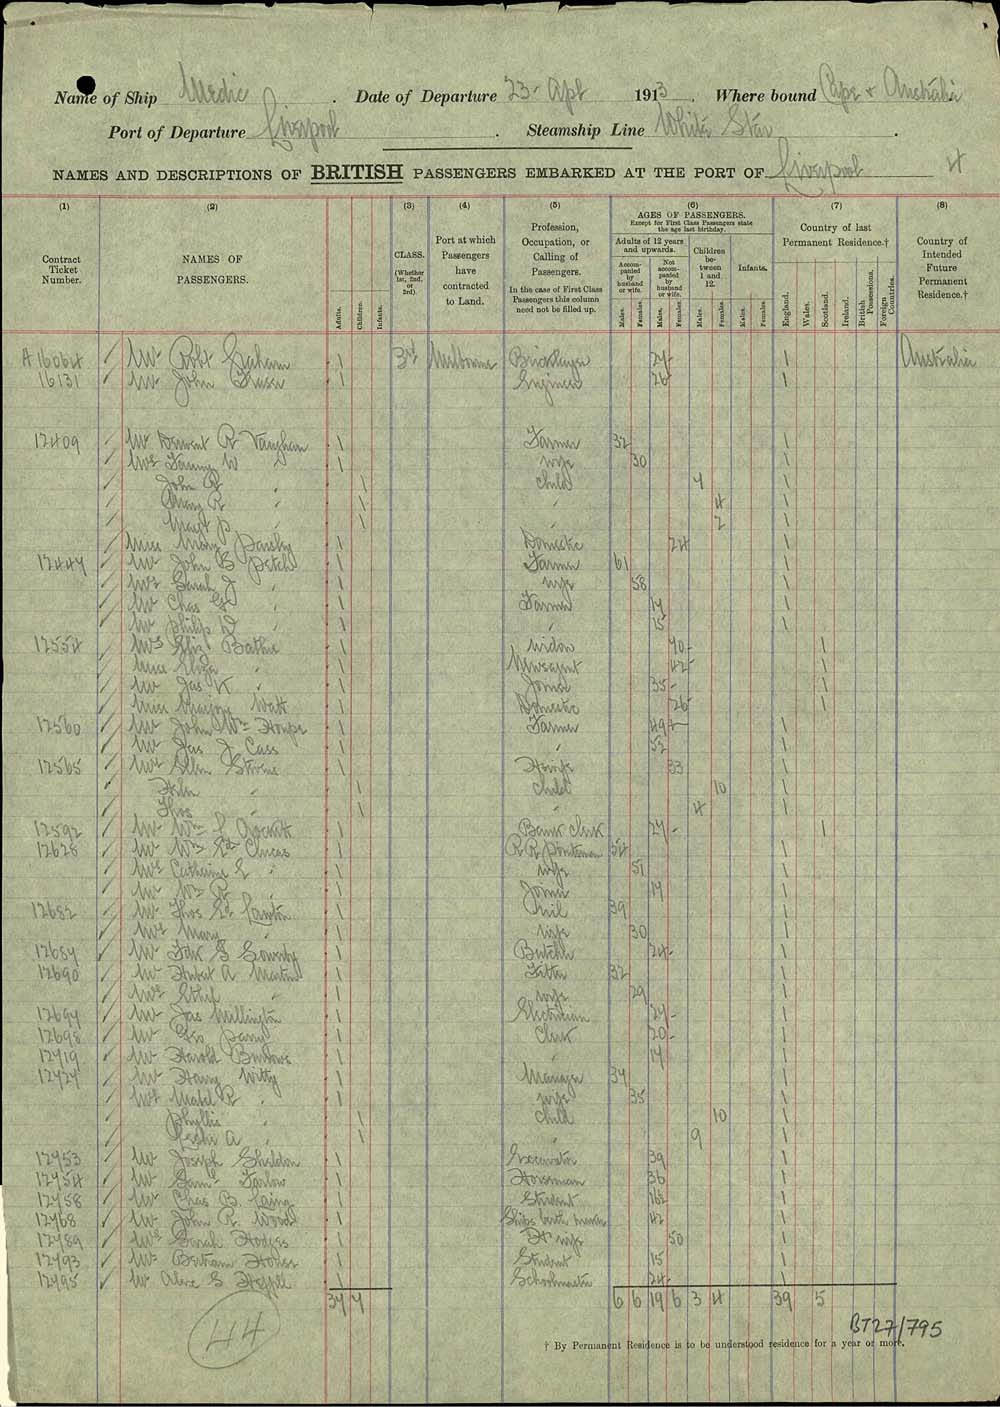 Name of Ship Medic . Date of Departure 23 - Apl 1913. Where bound Cape + Australia
Port of Departure Liverpool . Steamship Line White Star .
NAMES AND DESCRIPTIONS OF BRITISH PASSENGERS EMBARKED AT THE PORT OF Liverpool 4
(1) (2) (3) (4) (5) (6) (7) (8)
Contract Ticket Number.
NAMES OF PASSENGERS.
Adults. Children. Infants.
CLASS. (Whether 1st, 2nd, or 3rd).
Port at which Passengers have contracted to Land.
Profession, Occupation, or Calling of Passengers.
In the case of First Class Passengers this column need not be filled up.
AGES OF PASSENGERS.
Except for First Class Passengers state the age last birthday.
Adults of 12 years and upwards.
Accompanied by husband or wife. Not accompanied by husband or wife.
Children between 1 and 12.
Infants.
Males. Females. Males. Females. Males. Females. Males. Females.
Country of last Permanent Residence.†
England. Wales. Scotland. Ireland. British Possessions. Foreign Countries.
Country of Intended Future Permanent Residence.†
A 16064 Mr Robt Graham 1 3rd Melbourne Bricklayer 27 1 Australia
16131 Mr John Fraser 1 Engineer 26 1
12409 Mr R Vaughan 1 Farmer 32 1
Mrs Fanny W " 1 wife 30 1
John R " 1 child 7 1
Mary R " 1 " 4 1
P " 1 " 2 1
Miss Mary 1 Domestic 24 1
12447 Mr John B Petch 1 Farmer 61 1
Mrs Sarah J " 1 wife 58 1
Mr Chas " 1 Farmer 17 1
Mr Philip " 1 " 15 1
12554 Mrs Eliz Bathie 1 widow 70 1
Miss Eliza " 1 Newsagent 42 1
Mr Jas K " 1 Joiner 35 1
Miss Watt 1 Domestic 26 1
12560 Mr John Wm 1 Farmer 49 1
Mr Jas J Cass 1 " 52 1
12565 Mrs Ellen Stevens 1 Hwife 33 1
" 1 child 10 1
Thos " 1 " 4 1
12592 Mr Wm 1 Bank Clerk 27 1
12628 Mr Wm Ed Lucas 1 R R Pointsman 54 1
Mrs Catherine E " 1 wife 51 1
Mr Wm R " 1 Joiner 17 1
12682 Mr Thos Ed 1 nil 39 1
Mrs Mary " 1 wife 30 1
12687 Mr Fdk 1 Butcher 24 1
12690 Mr A Martin 1 Fitter 32 1
Mrs Ethel " 1 wife 29 1
12697 Mr Jas Millington 1 Electrician 27 1
12698 Mr Geo Parry 1 Clerk 20 1
12719 Mr Harold 1 " 17 1
12727 Mr Harry Witty 1 Manager 37 1
Mrs Mabel R " 1 wife 35 1
Phyllis " 1 child 10 1
Leslie A " 1 " 9 1
12753 Mr Joseph Sheldon 1 Excavator 39 1
12754 Mr Saml Farlow 1 Horseman 36 1
12758 Mr Chas B. Laing 1 Student 1
12768 Mr John R. Wood 1 42 1
12789 Mrs Sarah Hodges 1 Hwife 50 1
12793 Mr Bertram Hodges 1 Student 15 1
12795 Mr Alexr S 1 Schoolmaster 24 1
37 7 6 6 19 6 3 4 39 5
44
BT27/795
† By Permanent Residence is to be understood residence for a year or more.